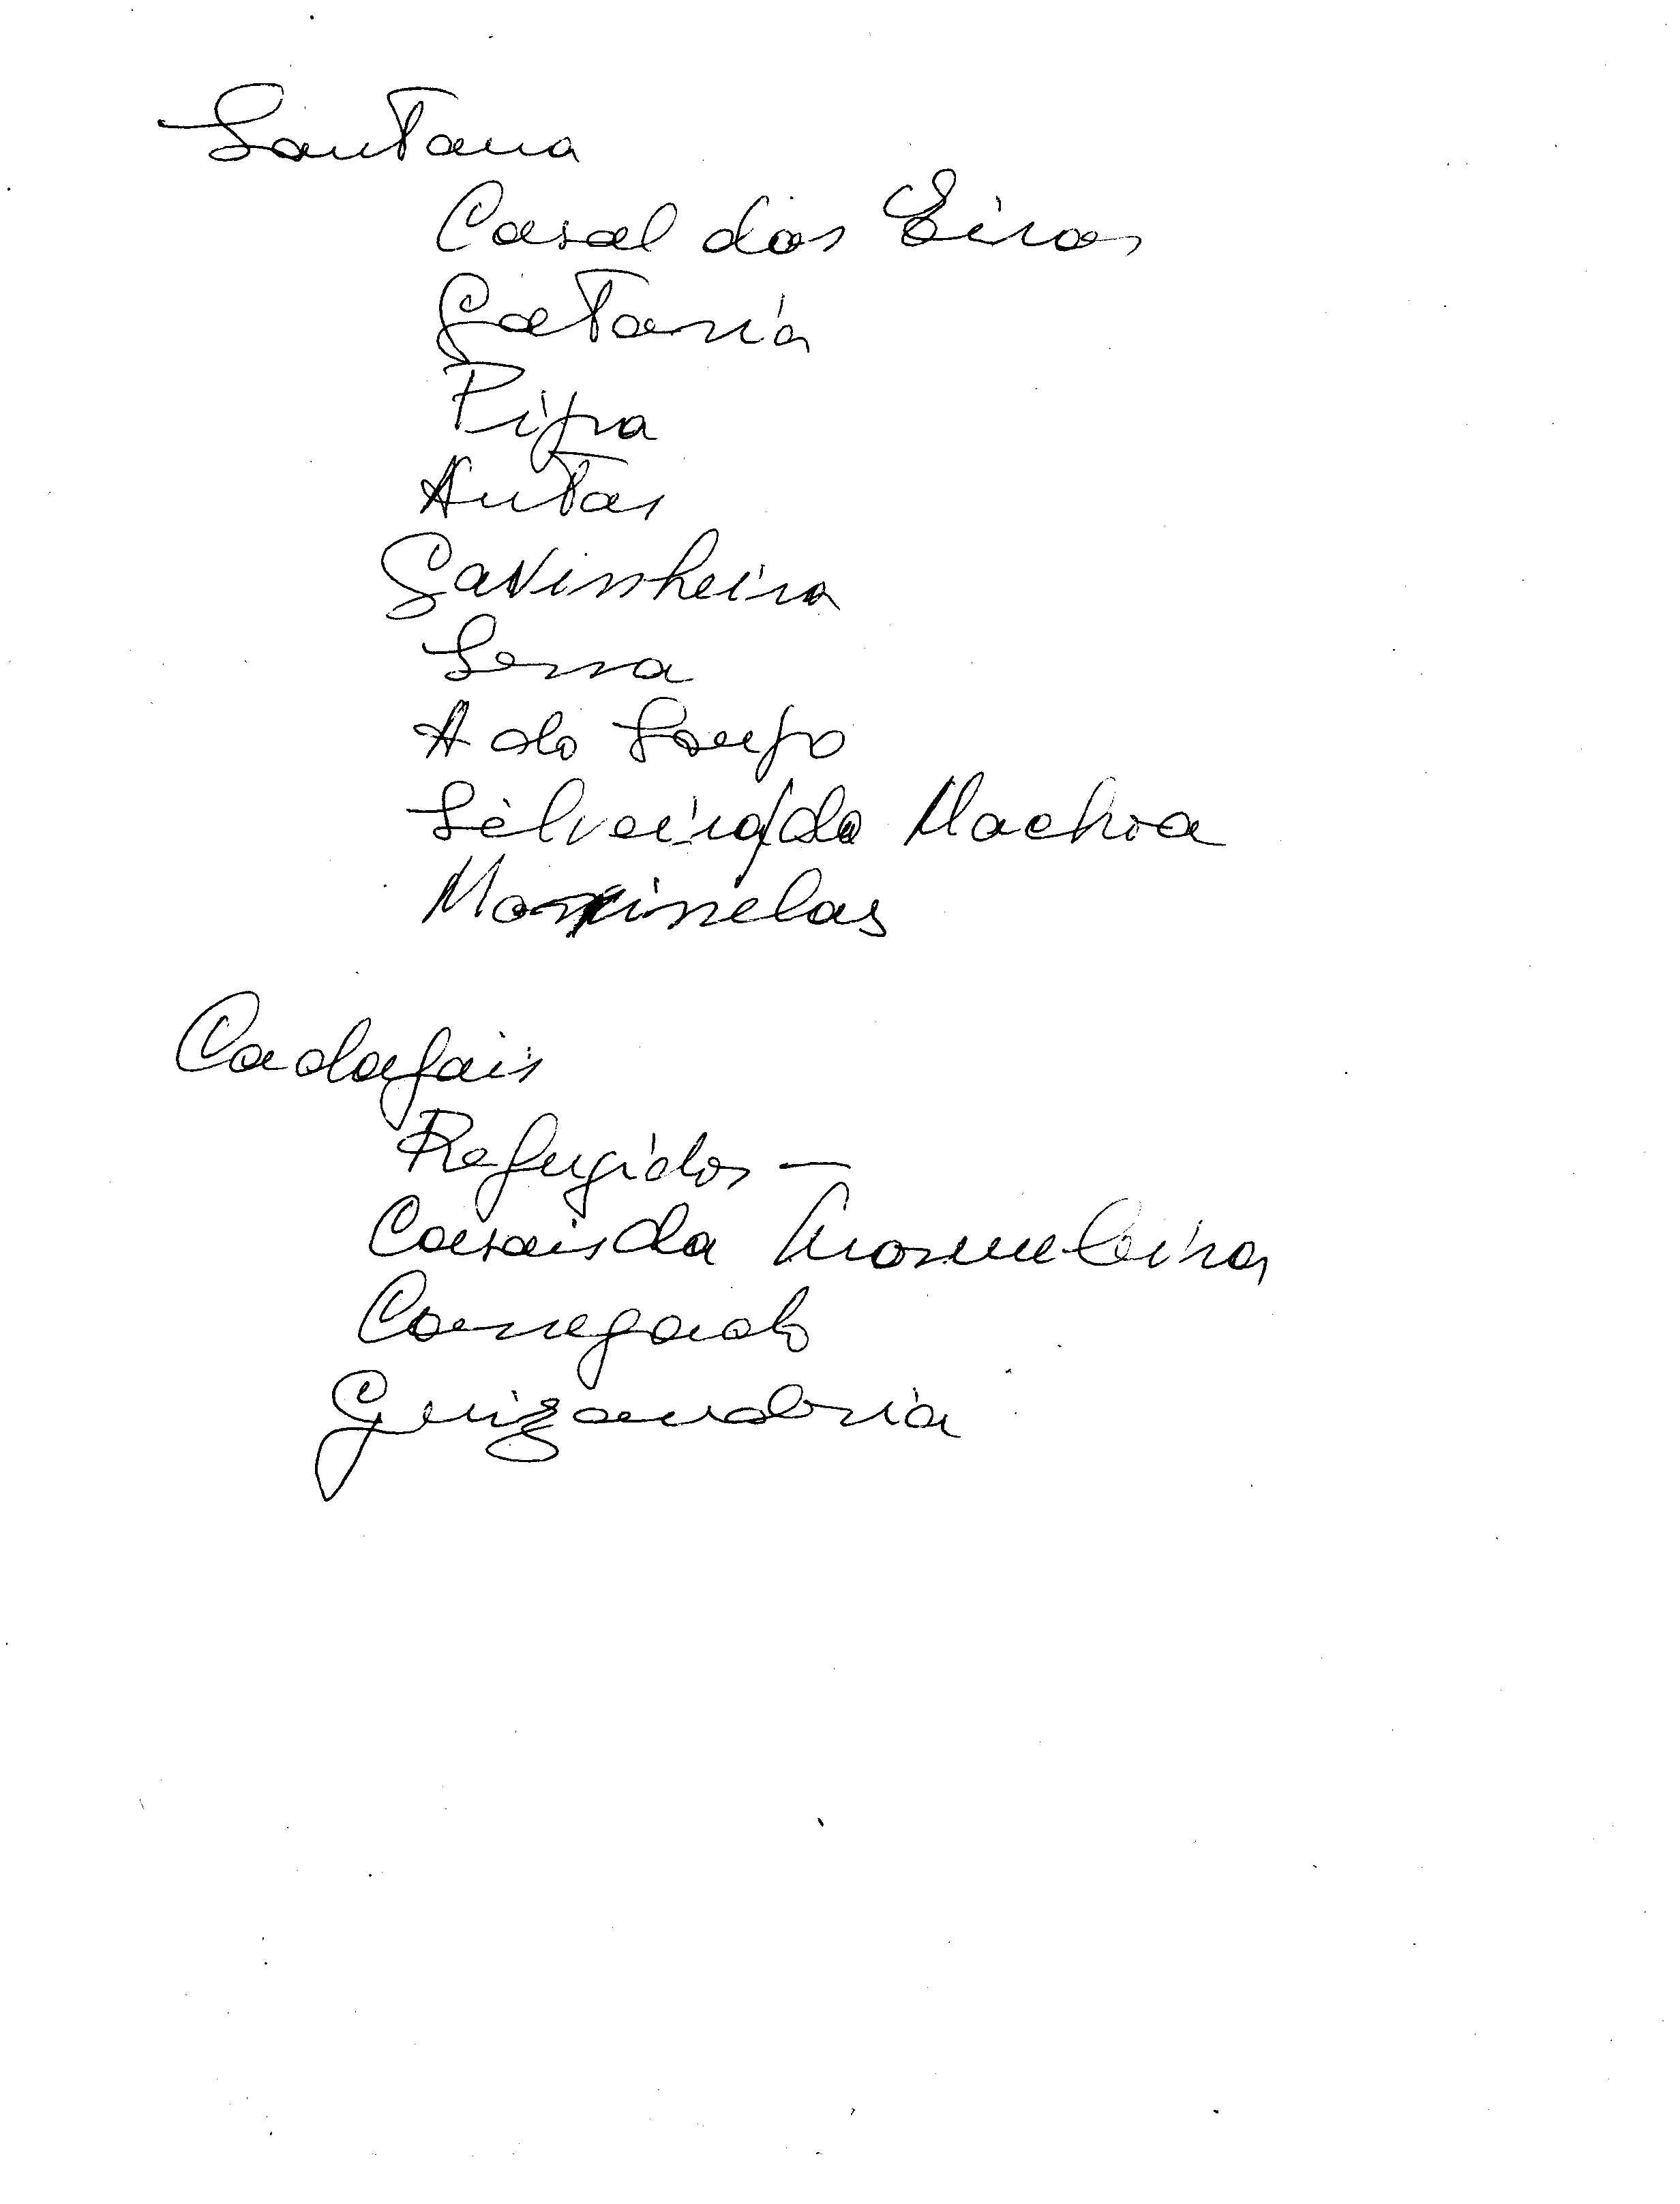 Santana
Casal das Eiras
Gataria
Pipa
Antas
Gavinheira
Serra
A do Soupo
Silveira da Machoa
Moninelas
Cadafais
Refugidos —
Casais da Marmeleira
Carregado
Guizandria